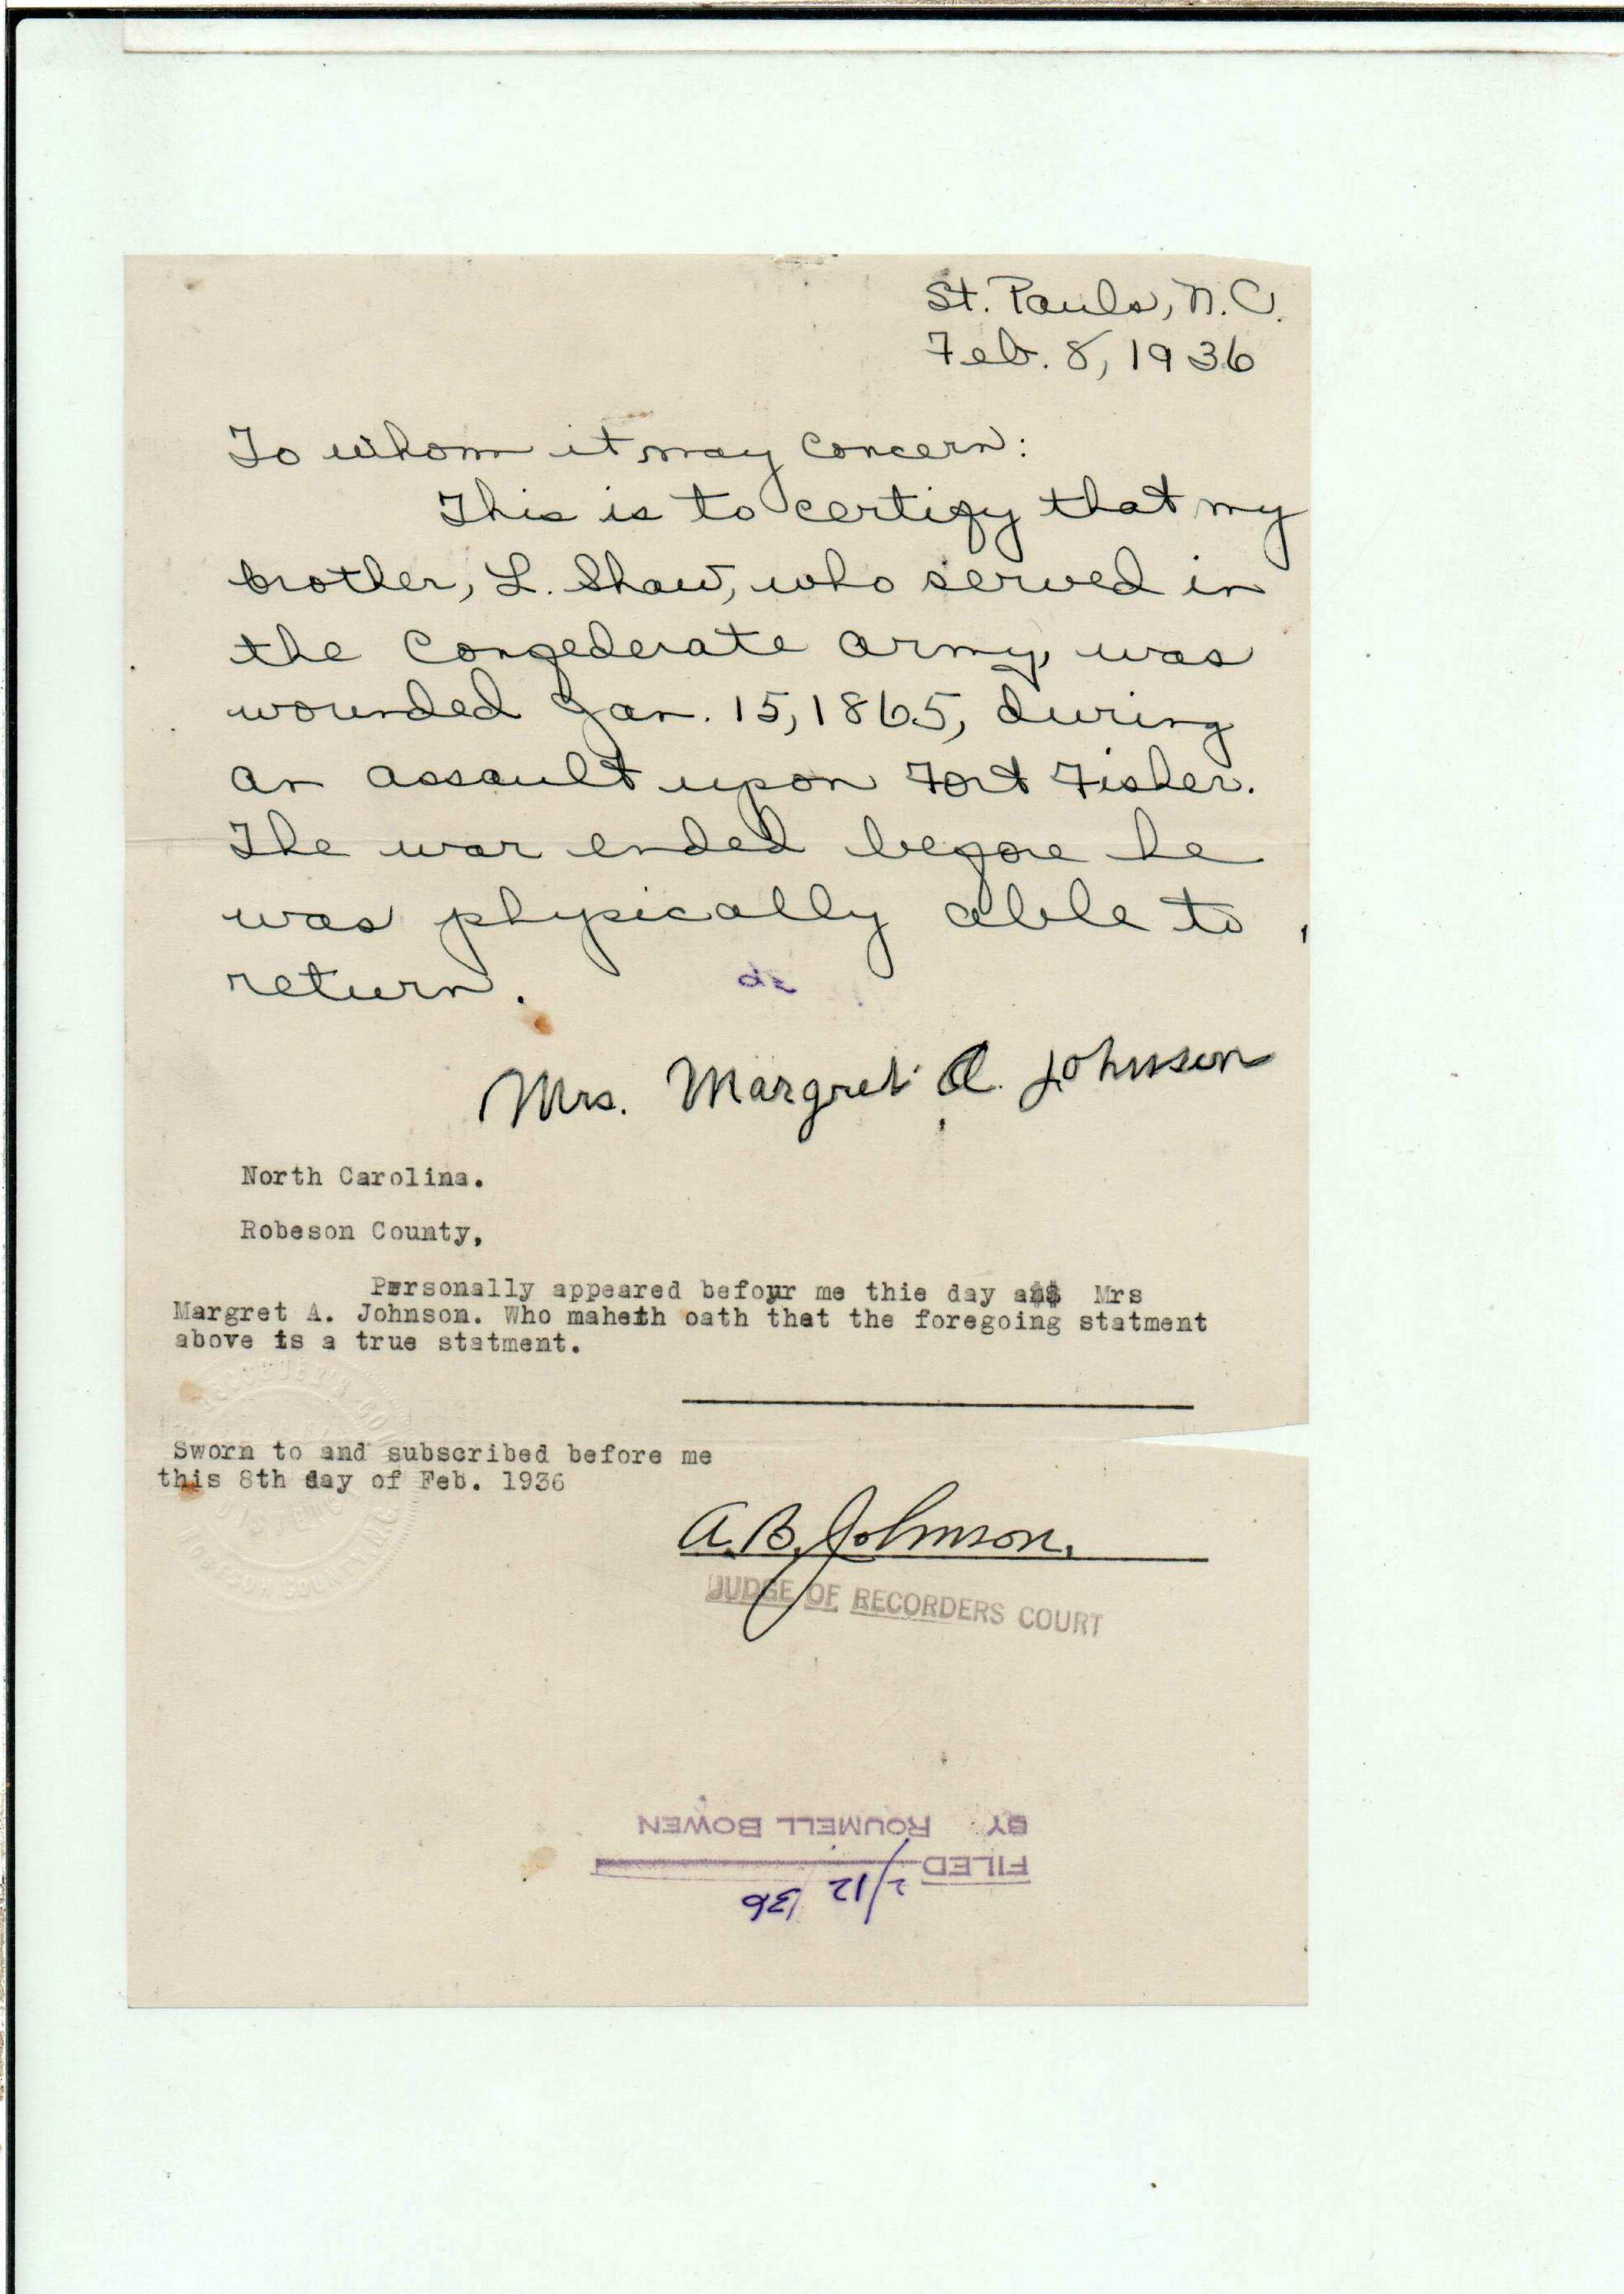 St. Pauls, N.C.
Feb. 8, 1936
To whom it may concern:
This is to certify that my
brother, L. Shaw, who served in
the Confederate army, was
wounded Jan. 15, 1865, during
an assault upon Fort Fisher.
The war ended before he
was physically able to
return.
Mrs. Margret A. Johnson
North Carolina.
Robeson County,
Personally appeared befour me thie day Mrs
Margret A. Johnson. Who maheth oath that the foregoing statment
above is a true statment.
Sworn to and subscribed before me
this 8th day of Feb. 1936
A.B. Johnson.
JUDGE OF RECORDERS COURT
ROBESON COUNTY, N.C.
2/12 /36
FILED
BY ROUMELL BOWEN